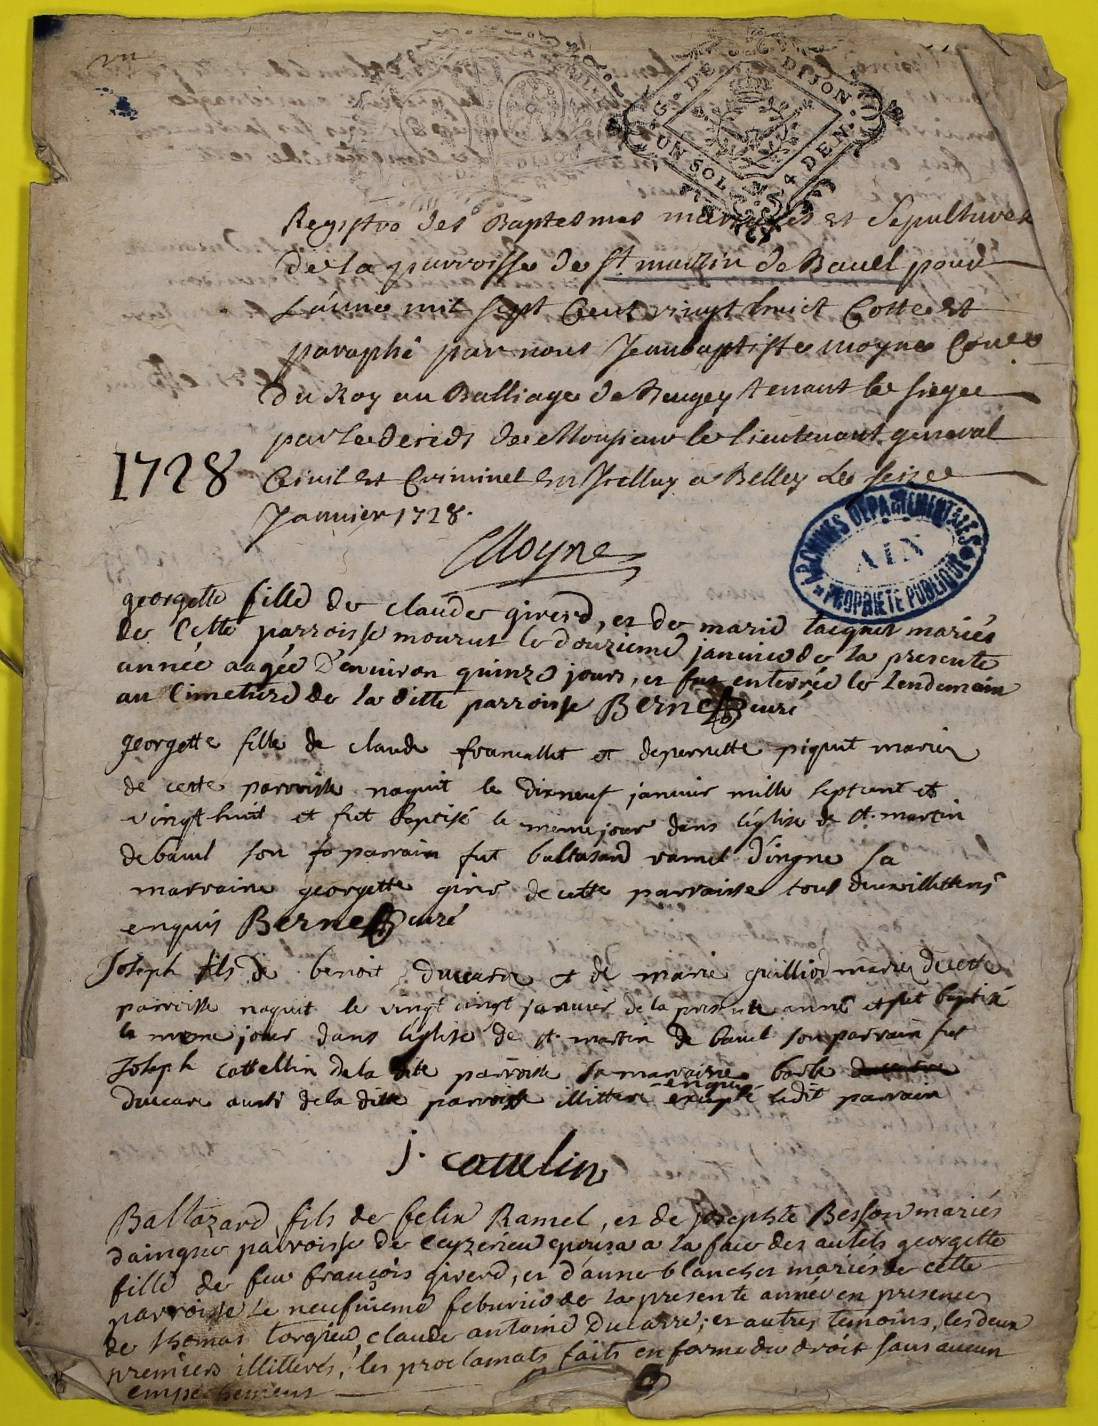 G. DE DIJON
UN SOL. 4 DEN.
Registre des Baptesmes mariages et Sepultures
de la parroisse de St martin de Bauel pour
L'année mil sept Cent vingt huict Cotte et
paraphé par nous Jeanbaptiste moyne Coner
du Roy au Balliage de Beugey tenant le siege
par le deceds de Monsieur le lieutenant general
1728
Civil et Criminel en Icelluy a Belley le seize
Janvier 1728.
Moyne
ARCHIVES DEPARTEMENTALES
AIN
PROPRIETE PUBLIQUE
georgette fille de claude girerd, et de marie tacquet mariés
de Cette parroisse mourut le douzieme janvier de la presente
année aagée D'environ quinze jours, et fut enterrée le Lendemain
au Cimetiere de la ditte parroisse Bernet curé
georgette fille de claude francallet et de perrette piquit mariez
de cette parroisse naquit le dixneuf janvier mille septcent et
vingt huit et fut baptisé le meme jour dans l'église de st. martin
de bauel son parrain fut baltasard ramel d'ingne sa
marraine georgette girer de cette parraisse tous deux illitterés
enquis Bernet curé
Joseph fils de benoit ducarre et de marie guilliod mariez de cette
parroisse naquit le vingt cinqt janvier de la presente anné et fut baptisé
le meme jour dans l'eglise de st. martin de bauel son parrain fut
Joseph cattellin de la dite parroisse sa marraine barbe
ducarre aussi de la ditte parroisse illittere enquis excepté ledit parrain
j. catelin
Baltazard fils de felix Ramel, et de josephte Besson mariés
d'aingne parroisse de Ceyzerieu epousa a la face des autels georgette
fille de feu françois girerd, et d'anne blanchet mariés de cette
parroisse Le neufvieme febvrier de la presente année en presence
de thomas torgieu, claude antoine Ducarre, et autres temoins, les deux
premiers illitterés, les proclamats faits en forme de droit sans aucun
empechement